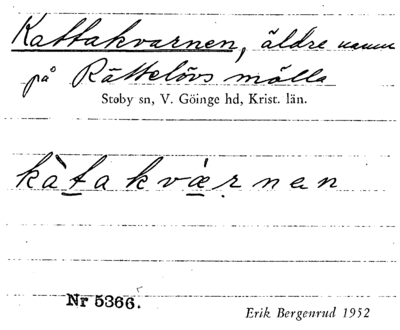 Kattakvarnen, äldre namn
på Rättelövs mölla
Støby sn, V. Göinge hd, Krist. län.
kàtakvæ̀rnen
Nr 5366.
Erik Bergenrud 1952